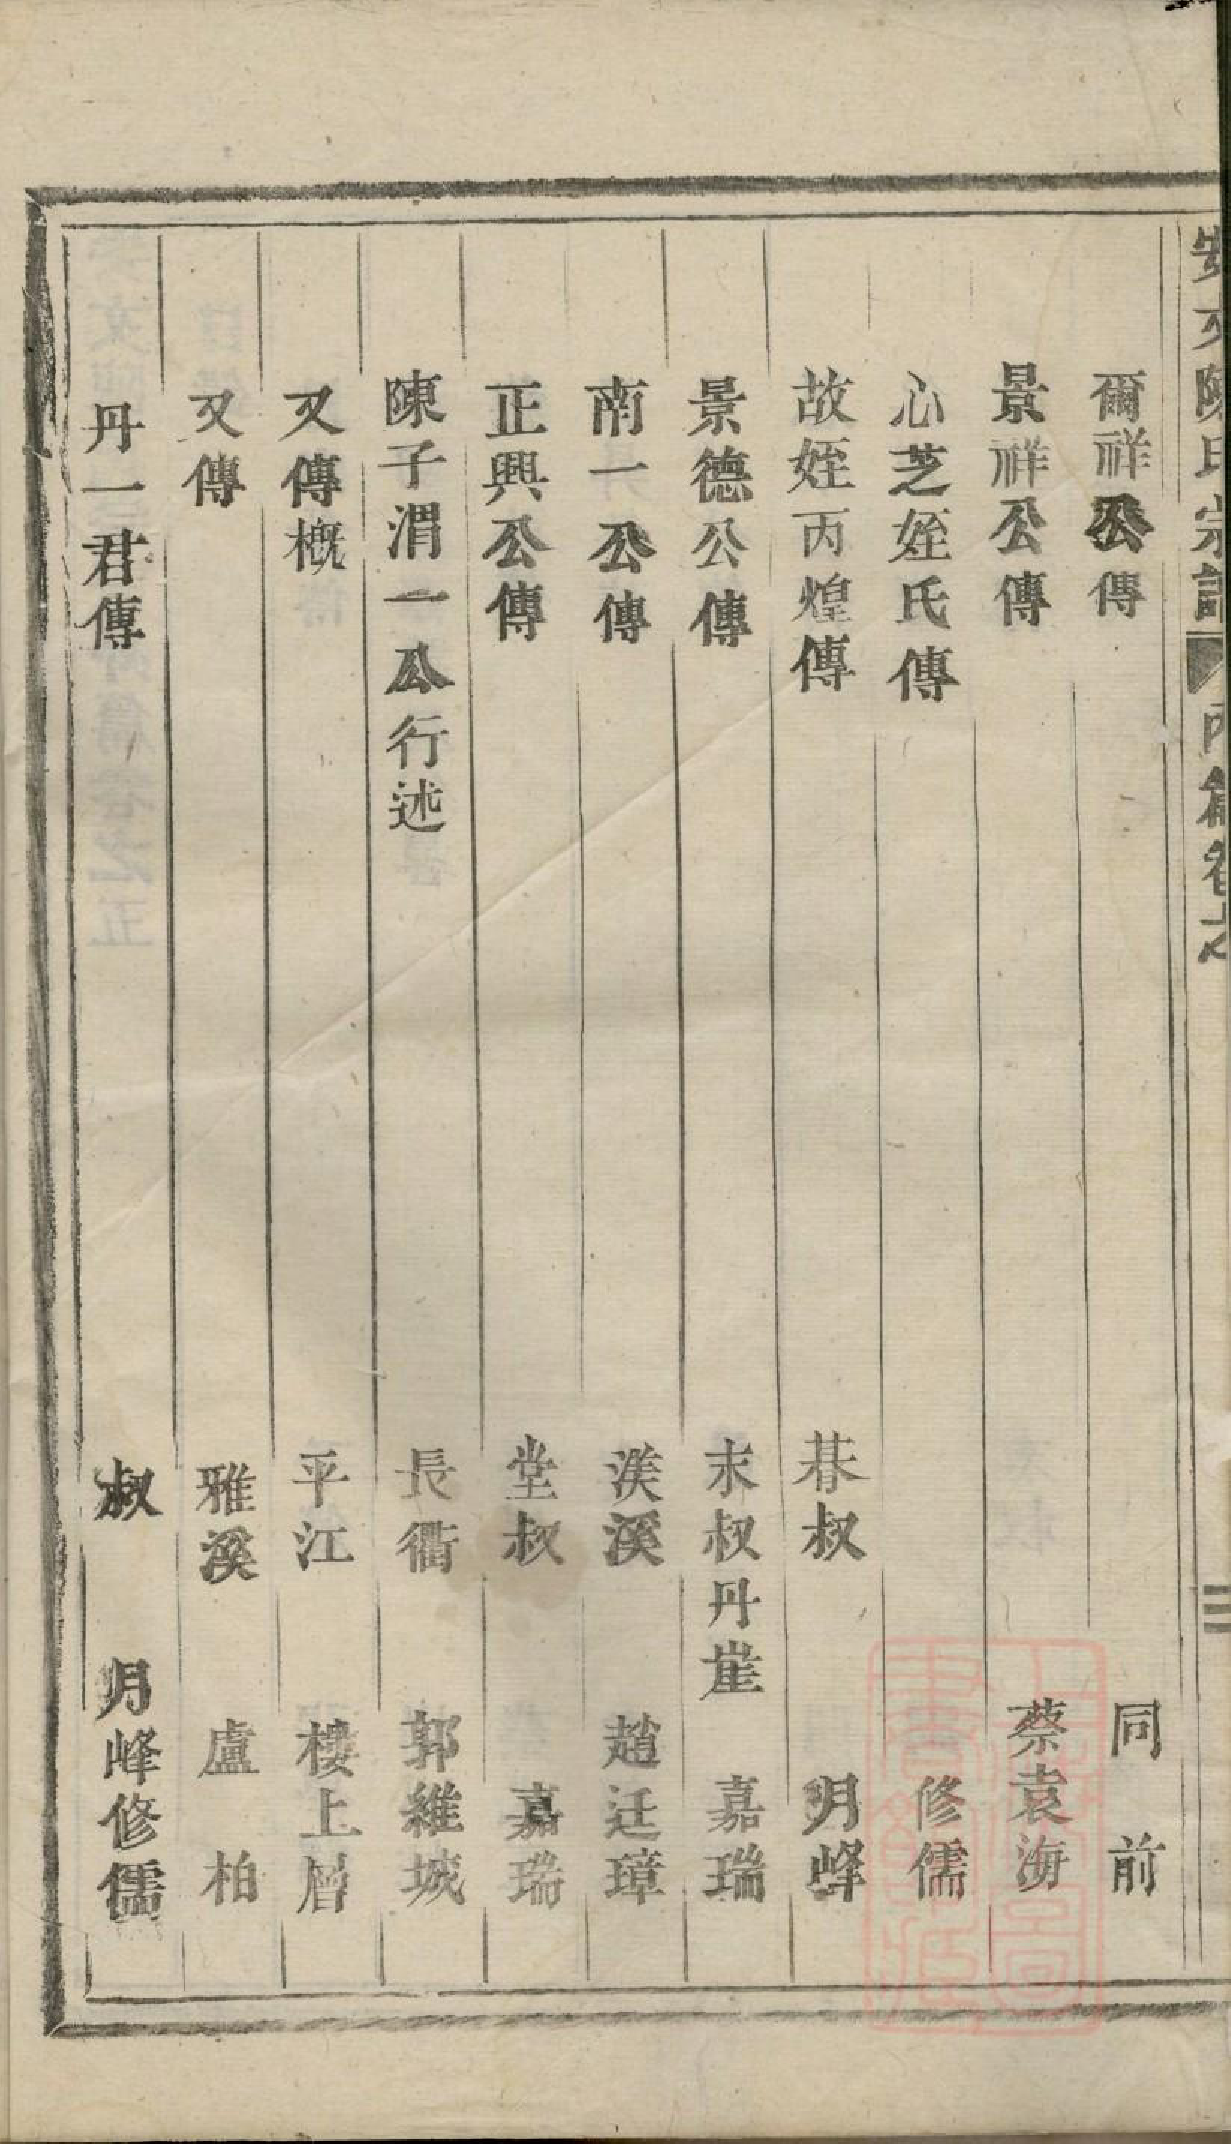 安文陳氏宗譜 內篇卷之 二
爾祥公傳 同前
景祥公傳 蔡袁海
心芝姪氏傳 修儒
故姪丙煌傳 朞叔 明峰
景德公傳 末叔丹崖 嘉瑞
南一公傳 渼溪 趙廷璋
正興公傳 堂叔 嘉瑞
陳子渭一公行述 長衢 郭維城
又傳概 平江 樓上層
又傳 雅溪 盧柏
丹一君傳 叔 明峰修儒